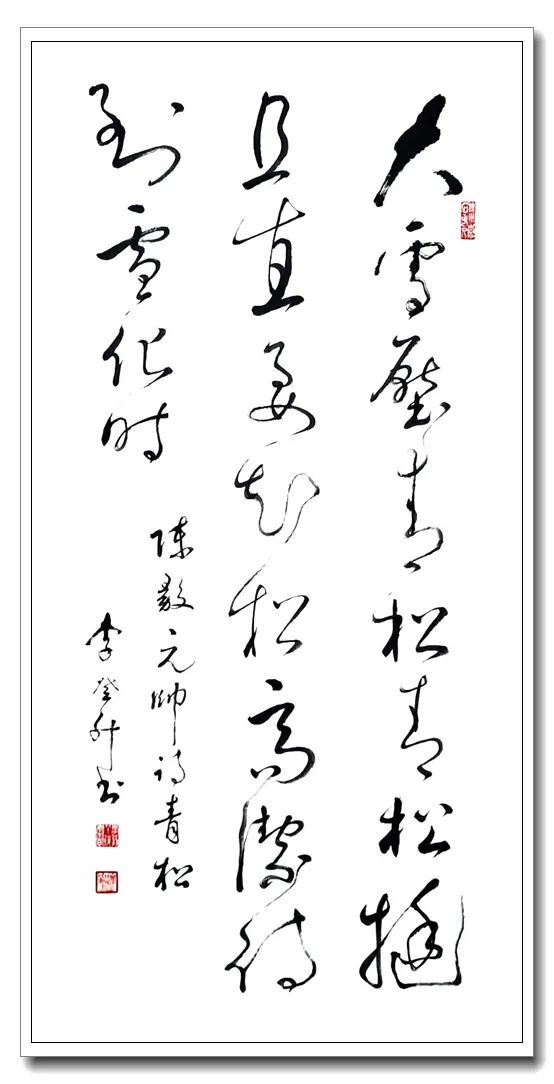 大雪壓青松青松挺
且直要知松高潔待
到雪化时
陈毅元帅诗青松
李登升书